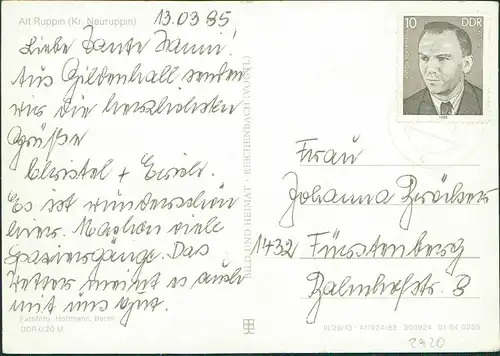 Alt Ruppin (Kr. Neuruppin)
13.03 85
Liebe Tante Hanni!
Aus Gildenhall senden
wir die herzlichsten
Grüße
Christel + Erich.
Es ist wunderschön
hier. Machen viele
Spaziergänge. Das
Wetter meint es auch
mit uns gut.
Farbfoto: Hoffmann, Berlin
DDR 0,20 M
BILD UND HEIMAT · REICHENBACH (VOGTL)
10
DDR
Frau
Johanna
1432 Fürstenberg
Bahnhofstr. 8
III/26/13 · A1/924/83 · 300924 · 01 04 0255
2920